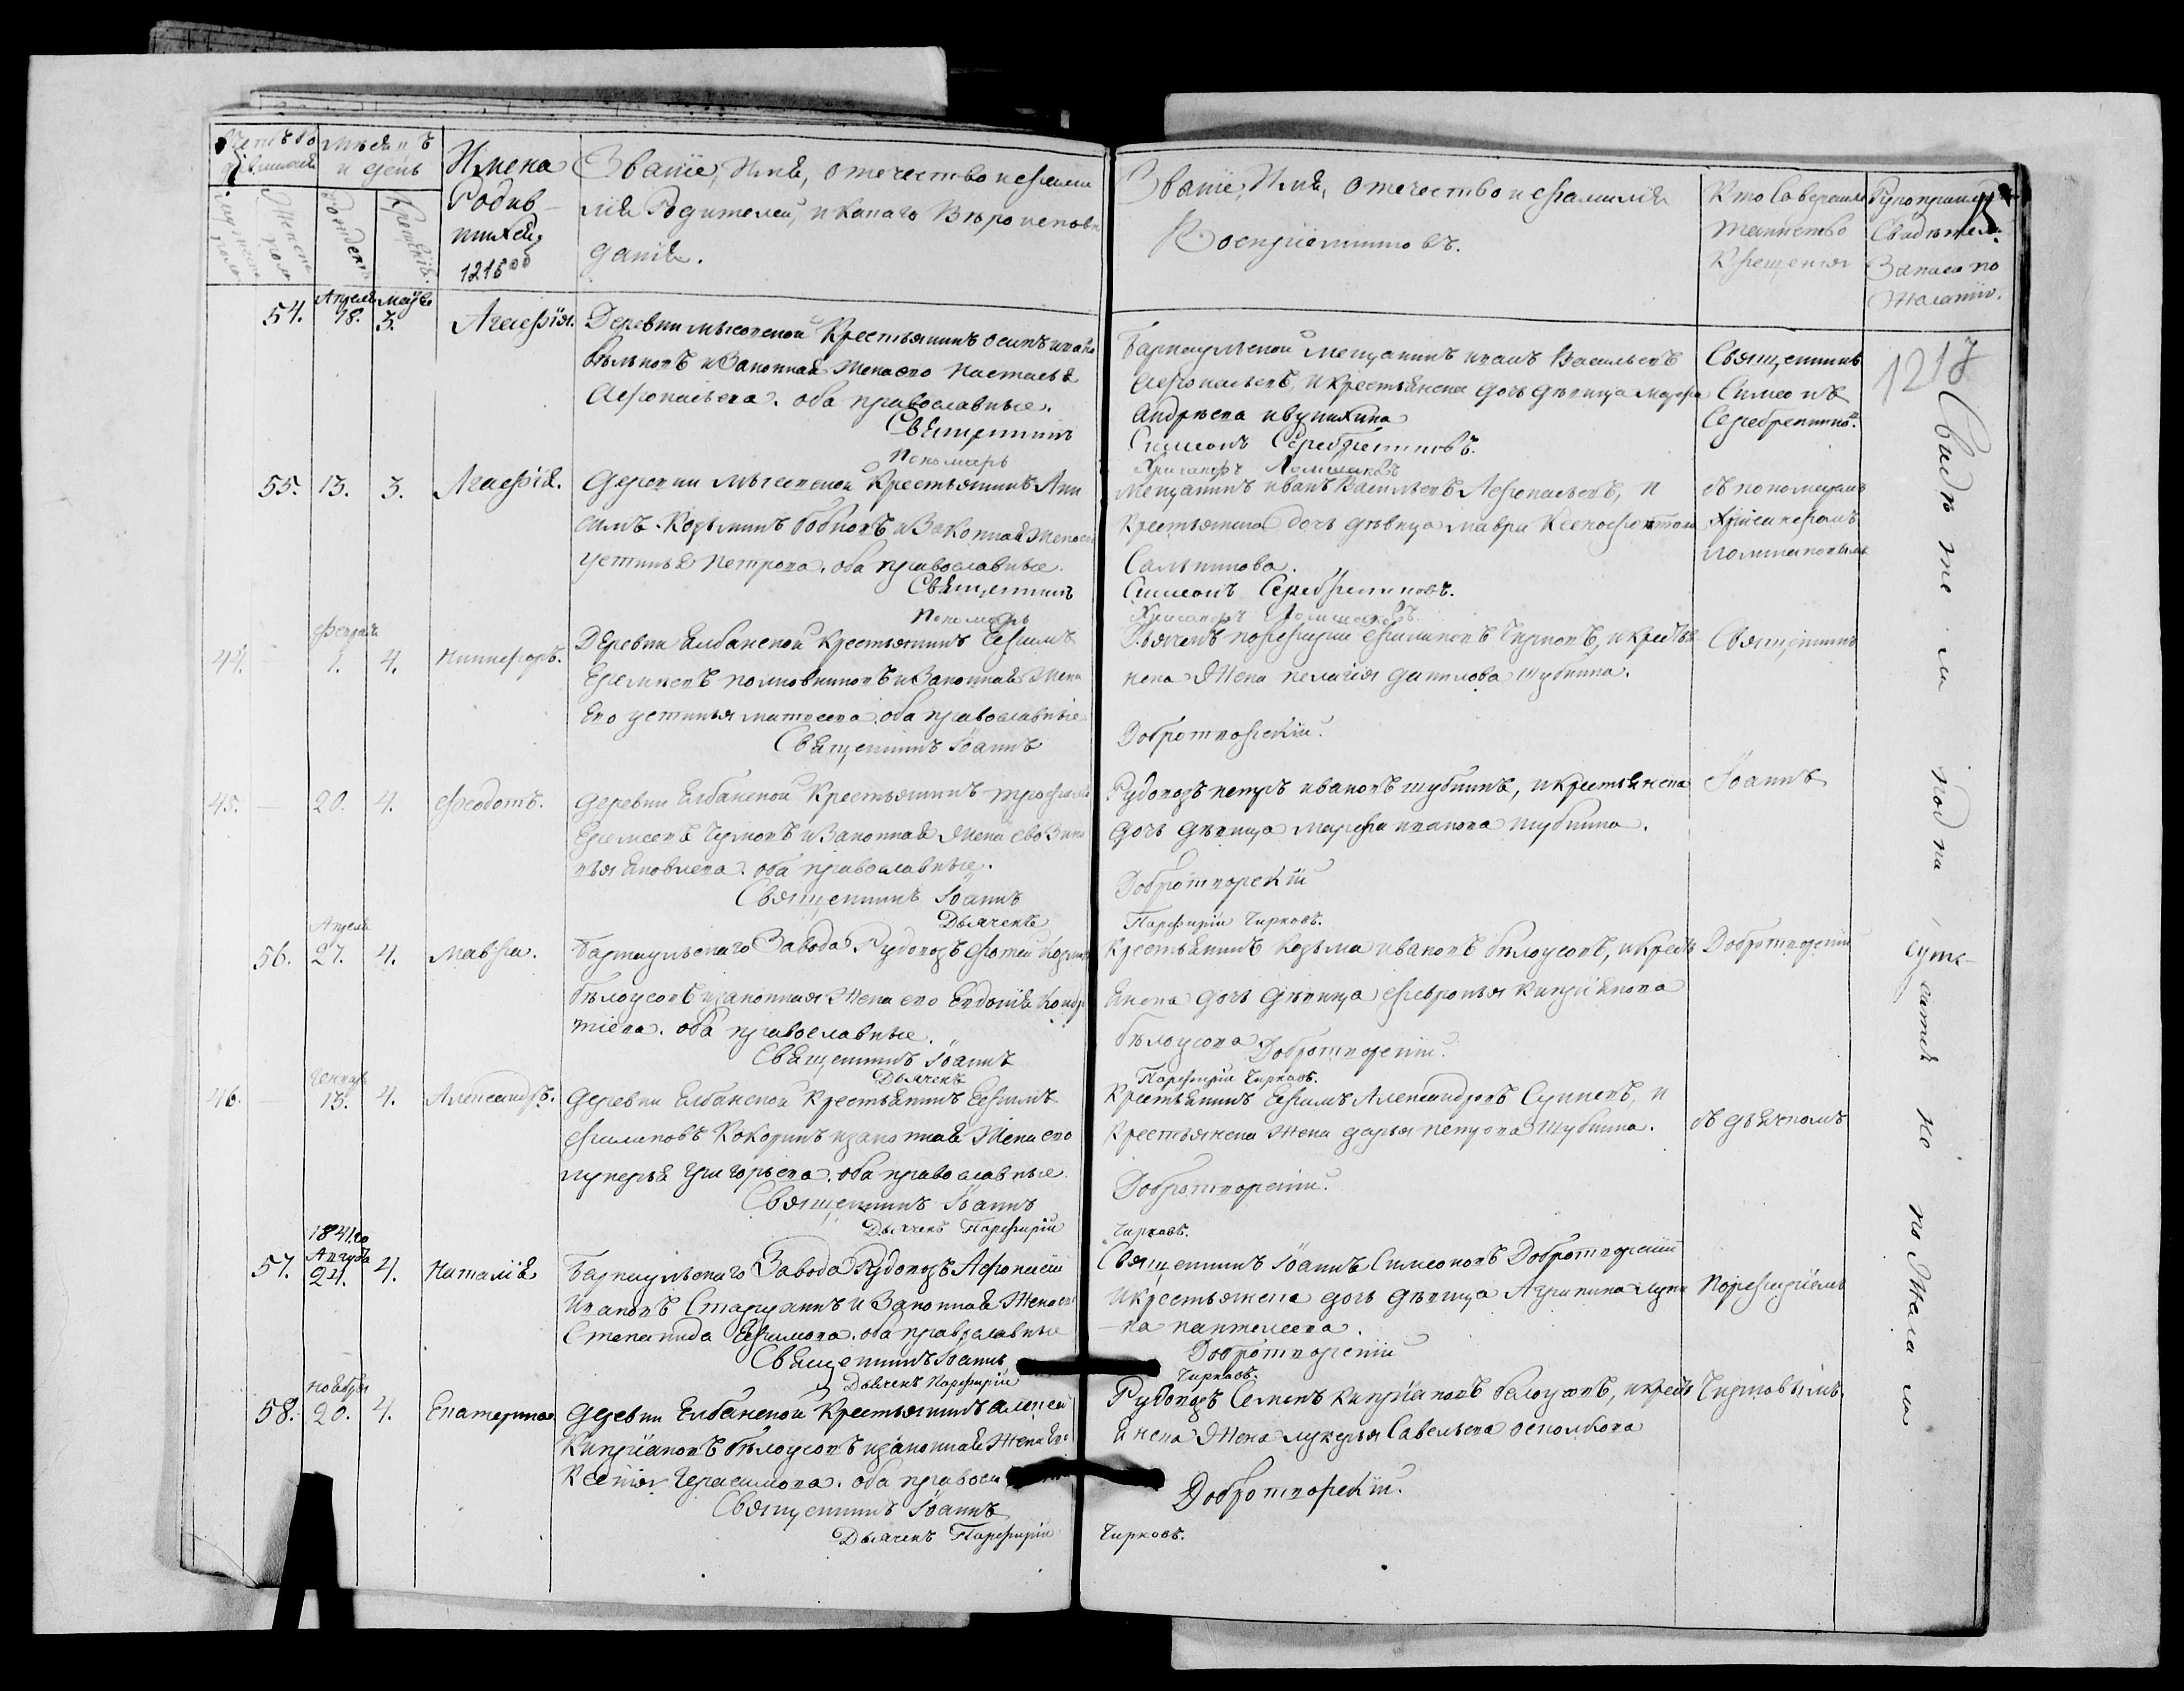 Мѣсяцъ
и день
Имена
Родив-
шихся.
1216об
Званіе, Имя, отечество и фами
лія Родителей, и какаго Вѣроиспове
данія.
Званіе, Имя, отечество и фамилія
Воспріемниковъ.
Кто Совершалъ
таинство
Крещенія
Рукоприкладство
Свидѣтелей
Записи по
Желанію.
1217
Мужеска
пола
Женска
пола
Рожденія
Крещенія.
54.
Апреля
18.
Маія
3.
Агафія.
Деревни Мысовской Крестьянинъ Осипъ
и Законная Жена его Настасья
Афонасьева. оба православные.
Священникъ
Барнаульской мещанинъ иванъ Васильевъ
Афонасьевъ, и крестьянска дочь дѣвица
Андрѣева
Симеонъ Серебренниковъ.
Священникъ
Симеонъ
Серебренниковъ
Пономарь
55.
13.
3.
Агафія.
Деревни Мысовской Крестьянинъ
симъ Козьминъ Бобковъ и Законная Жена его
Устинья Петрова. оба православные.
Священникъ
Пономарь
Мещанинъ иванъ Васильевъ Афонасьевъ, и
Крестьянска дочь дѣвица мавра Ксенофонтова
Сальникова.
Симеонъ Серебренниковъ.
съ пономаремъ
44.
Февраля
1.
4.
Никифоръ.
Деревни Елбанской Крестьянинъ Ефимъ
и Законная Жена
Его устинья матвеева. оба православные
Священникъ Іоаннъ
Дьячекъ порфирій филиповъ Чирковъ, и крестья
нска Жена пелагія данилова шубина.
Добротворскій.
Священникъ
45.
20.
4.
Феодотъ.
Деревни Елбанской Крестьянинъ трофимъ
Еремеевъ и Законная Жена его
Яковлева. оба православные.
Священникъ Іоаннъ
Дьячекъ
Рудовозъ петръ ивановъ шубинъ, и крестьянска
дочь дѣвица марфа иванова шубина.
Добротворскій
Парфирій Чирковъ.
Іоаннъ
56.
Апреля
27.
4.
Мавра.
Барнаульскаго Завода Рудовозъ фотей Козминъ
бѣлоусовъ и законная Жена его Евдокія Кондр
тіева. оба православные.
Священникъ Іоаннъ
Дьячекъ
Крестьянинъ Козьма ивановъ бѣлоусовъ, и крестья
янска дочь дѣвица февронья кипріянова
бѣлоусова
Добротворскій.
Парфирій Чирковъ.
Добротворскій
46.
Генваря
13.
4.
Александръ.
Деревни Елбанской Крестьянинъ Ефимъ
филиповъ Кокоринъ и законная Жена его
лукерья григорьева. оба православные.
Священникъ Іоаннъ
Дьячекъ Парфирій
Крестьянинъ Ефимъ Александровъ и
Крестьянска Жена дарья петрова шубина.
Добротворскій.
Чирковъ.
съ дьячкомъ
57.
1841го
Августа
24.
4.
Наталія
Барнаульскаго Завода Рудовозъ Афонасій
Ивановъ и Законная Жена его
Степанида Ефимова. оба православные
Священникъ Іоаннъ
Дьячекъ Парфирій
Священникъ Іоаннъ Симеоновъ Добротворскій
и крестьянска дочь дѣвица Агрипина
пантелеева.
Добротворскій
Чирковъ.
порфиріемъ
58.
Ноября
20.
4.
Екатерина.
Деревни Елбанской Крестьянинъ алексей
Кипріановъ бѣлоусовъ и законная Жена его
Ксенія Герасимова. оба православные
Священникъ Іоаннъ
Дьячекъ Парфирій
Рудовозъ Семенъ Кипріановъ белоусовъ, и кресть
янска Жена лукерья Савельева
Добротворскій.
Чирковъ.
Чирковымъ.
Свидѣтели подписаться не пожелали